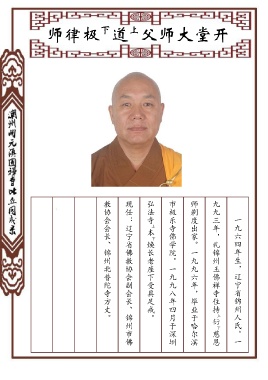 开堂大师父上道下极律师
一九六四年生，辽宁省锦州人氏。一
九九三年，礼锦州玉佛禅寺住持慈恩
师剃度出家。一九九六年，毕业于哈尔滨
市极乐寺佛学院。一九九八年四月于深圳
弘法寺上本下焕长老座下受具足戒。
现任：辽宁省佛教协会副会长、锦州市佛
教协会会长、锦州北普陀寺方丈。